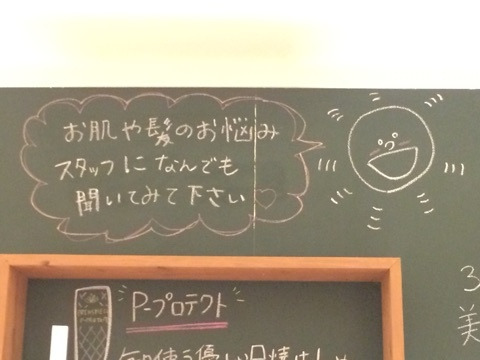 お肌や髪のお悩み
スタッフになんでも
聞いてみて下さい♡
P-プロテクト
3
美